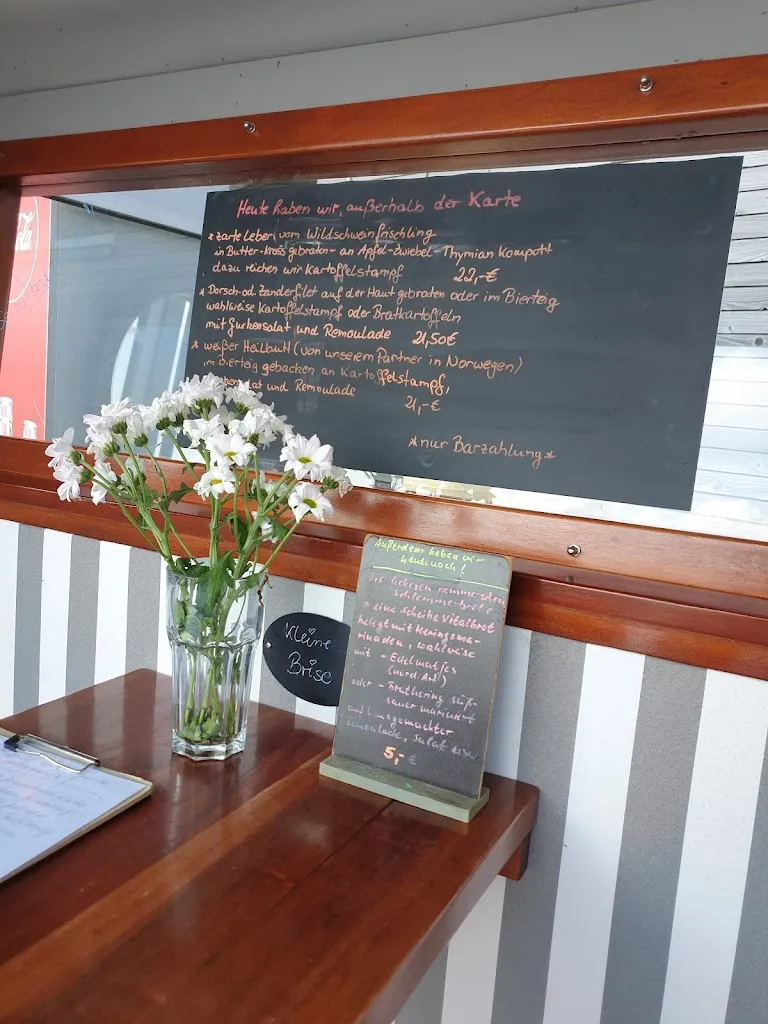 Heute haben wir, außerhalb der Karte
* zarte Leber vom Wildschweinfrischling
in Butter-Kross gebraten- an Apfel-Zwiebel-Thymian Kompott
dazu reichen wir Kartoffelstampf 22,-€
* Dorsch-od. Zanderfilet auf der Haut gebraten oder im Bierteig
wahlweise Kartoffelstampf oder Bratkartoffeln
mit Gurkensalat und Remoulade 21,50€
* weißer Heilbutt (von unserem Partner in Norwegen)
im Bierteig gebacken an Kartoffelstampf,
und Remoulade 21,-€
*nur Barzahlung*
Außerdem haben wi-
heute noch!
Die leckeren pommerschen
Schlemmerbrote
* eine Scheibe Vitalbrot
belegt mit Heringsma-
rinaden, wahlweise
mit - Edelmatjes
(nord. Art)
oder - Brathering süß-
sauer mariniert
auf hausgemachter
Remoulade, Salat usw
5,- €
Kleine
Brise